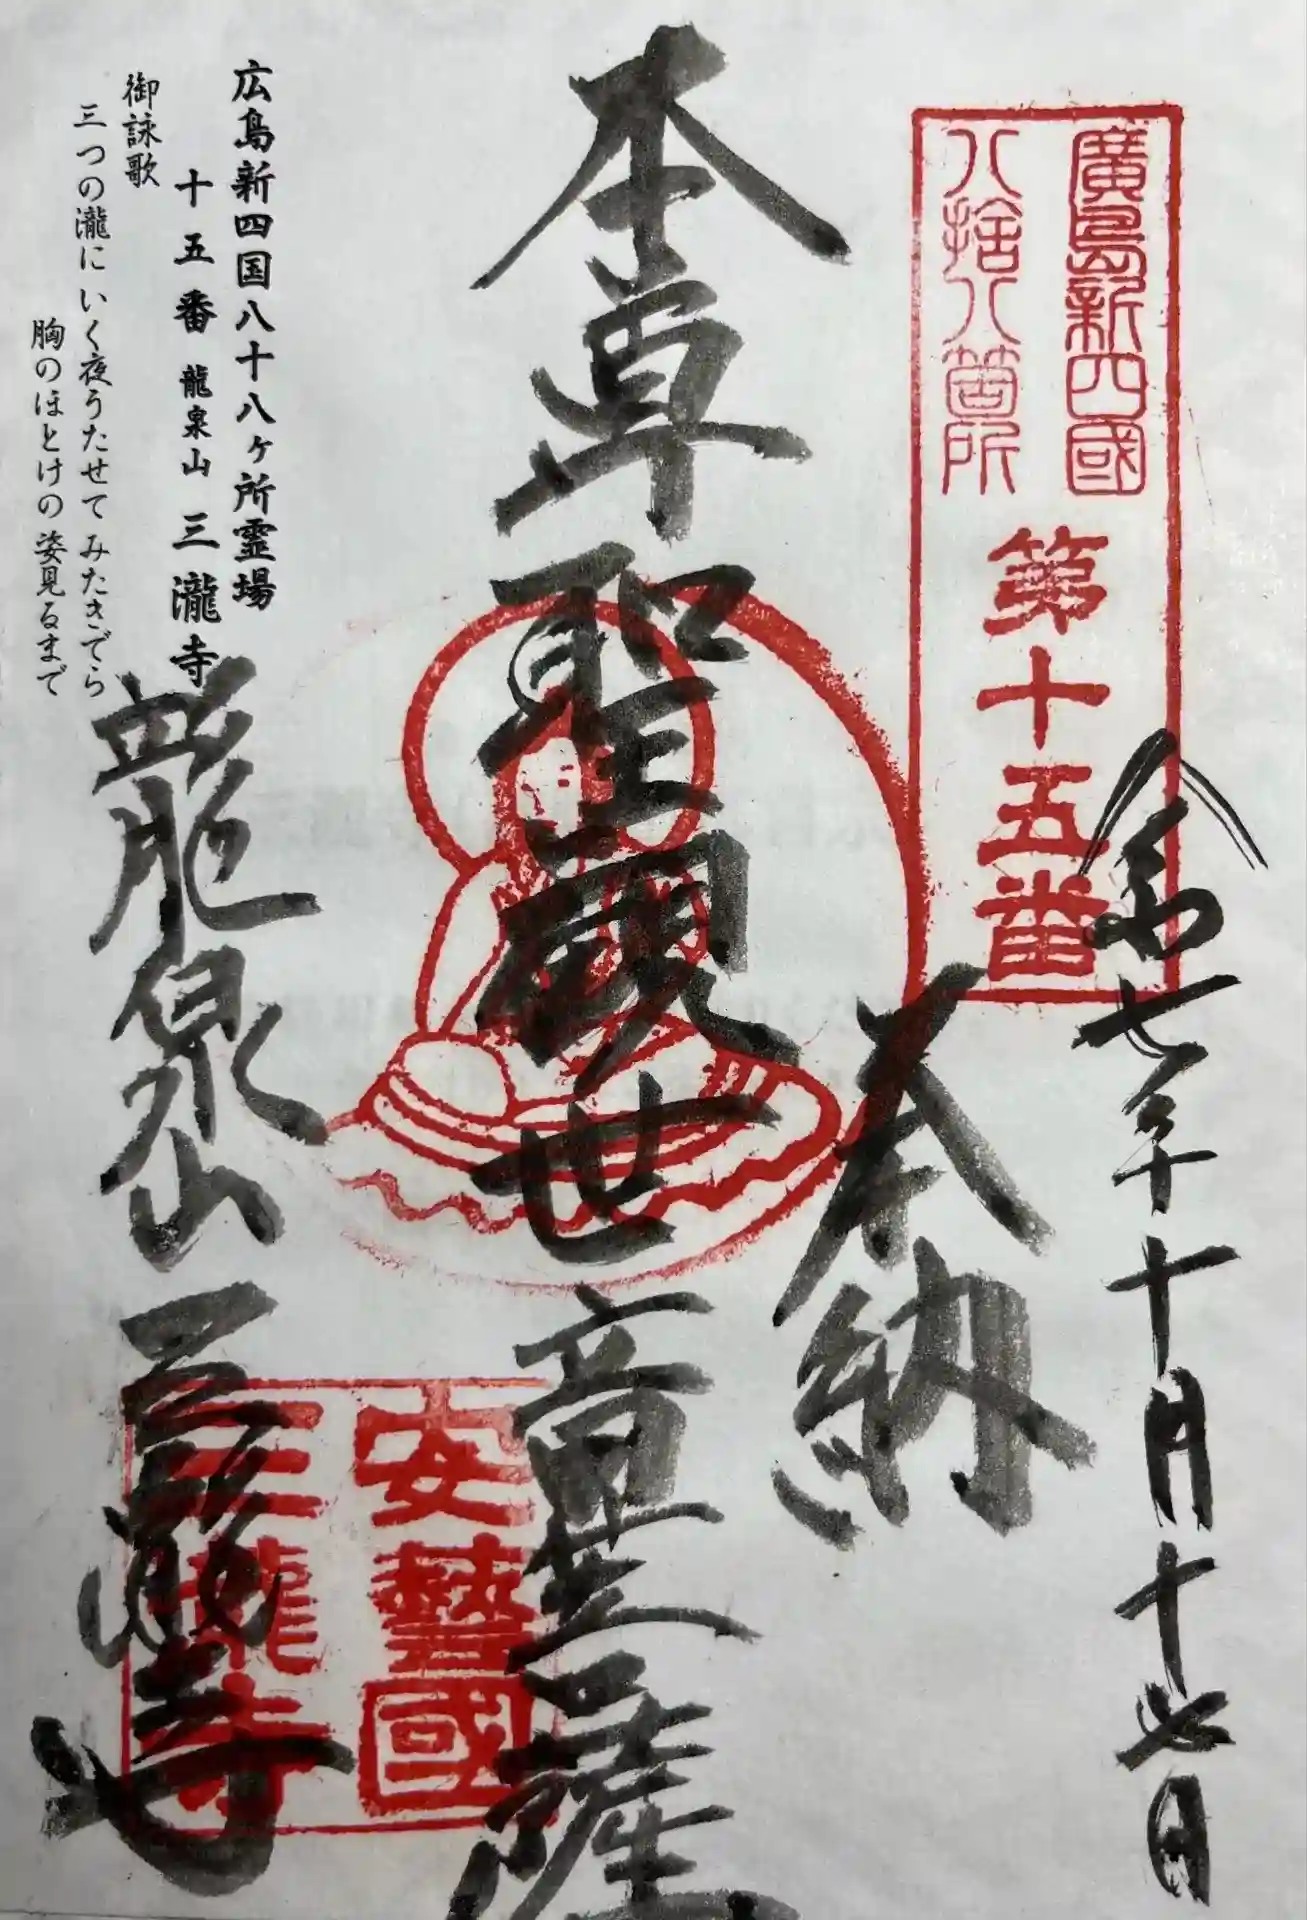 令和七年十月十七日
廣島新四國
八捨八箇所
第十五番
奉納
本尊聖観世音菩薩
安藝國
三瀧寺
龍泉山三瀧寺
広島新四国八十八ヶ所霊場
十五番 龍泉山 三瀧寺
御詠歌
三つの瀧にいく夜うたせて みたきでら
胸のほとけの姿見るまで